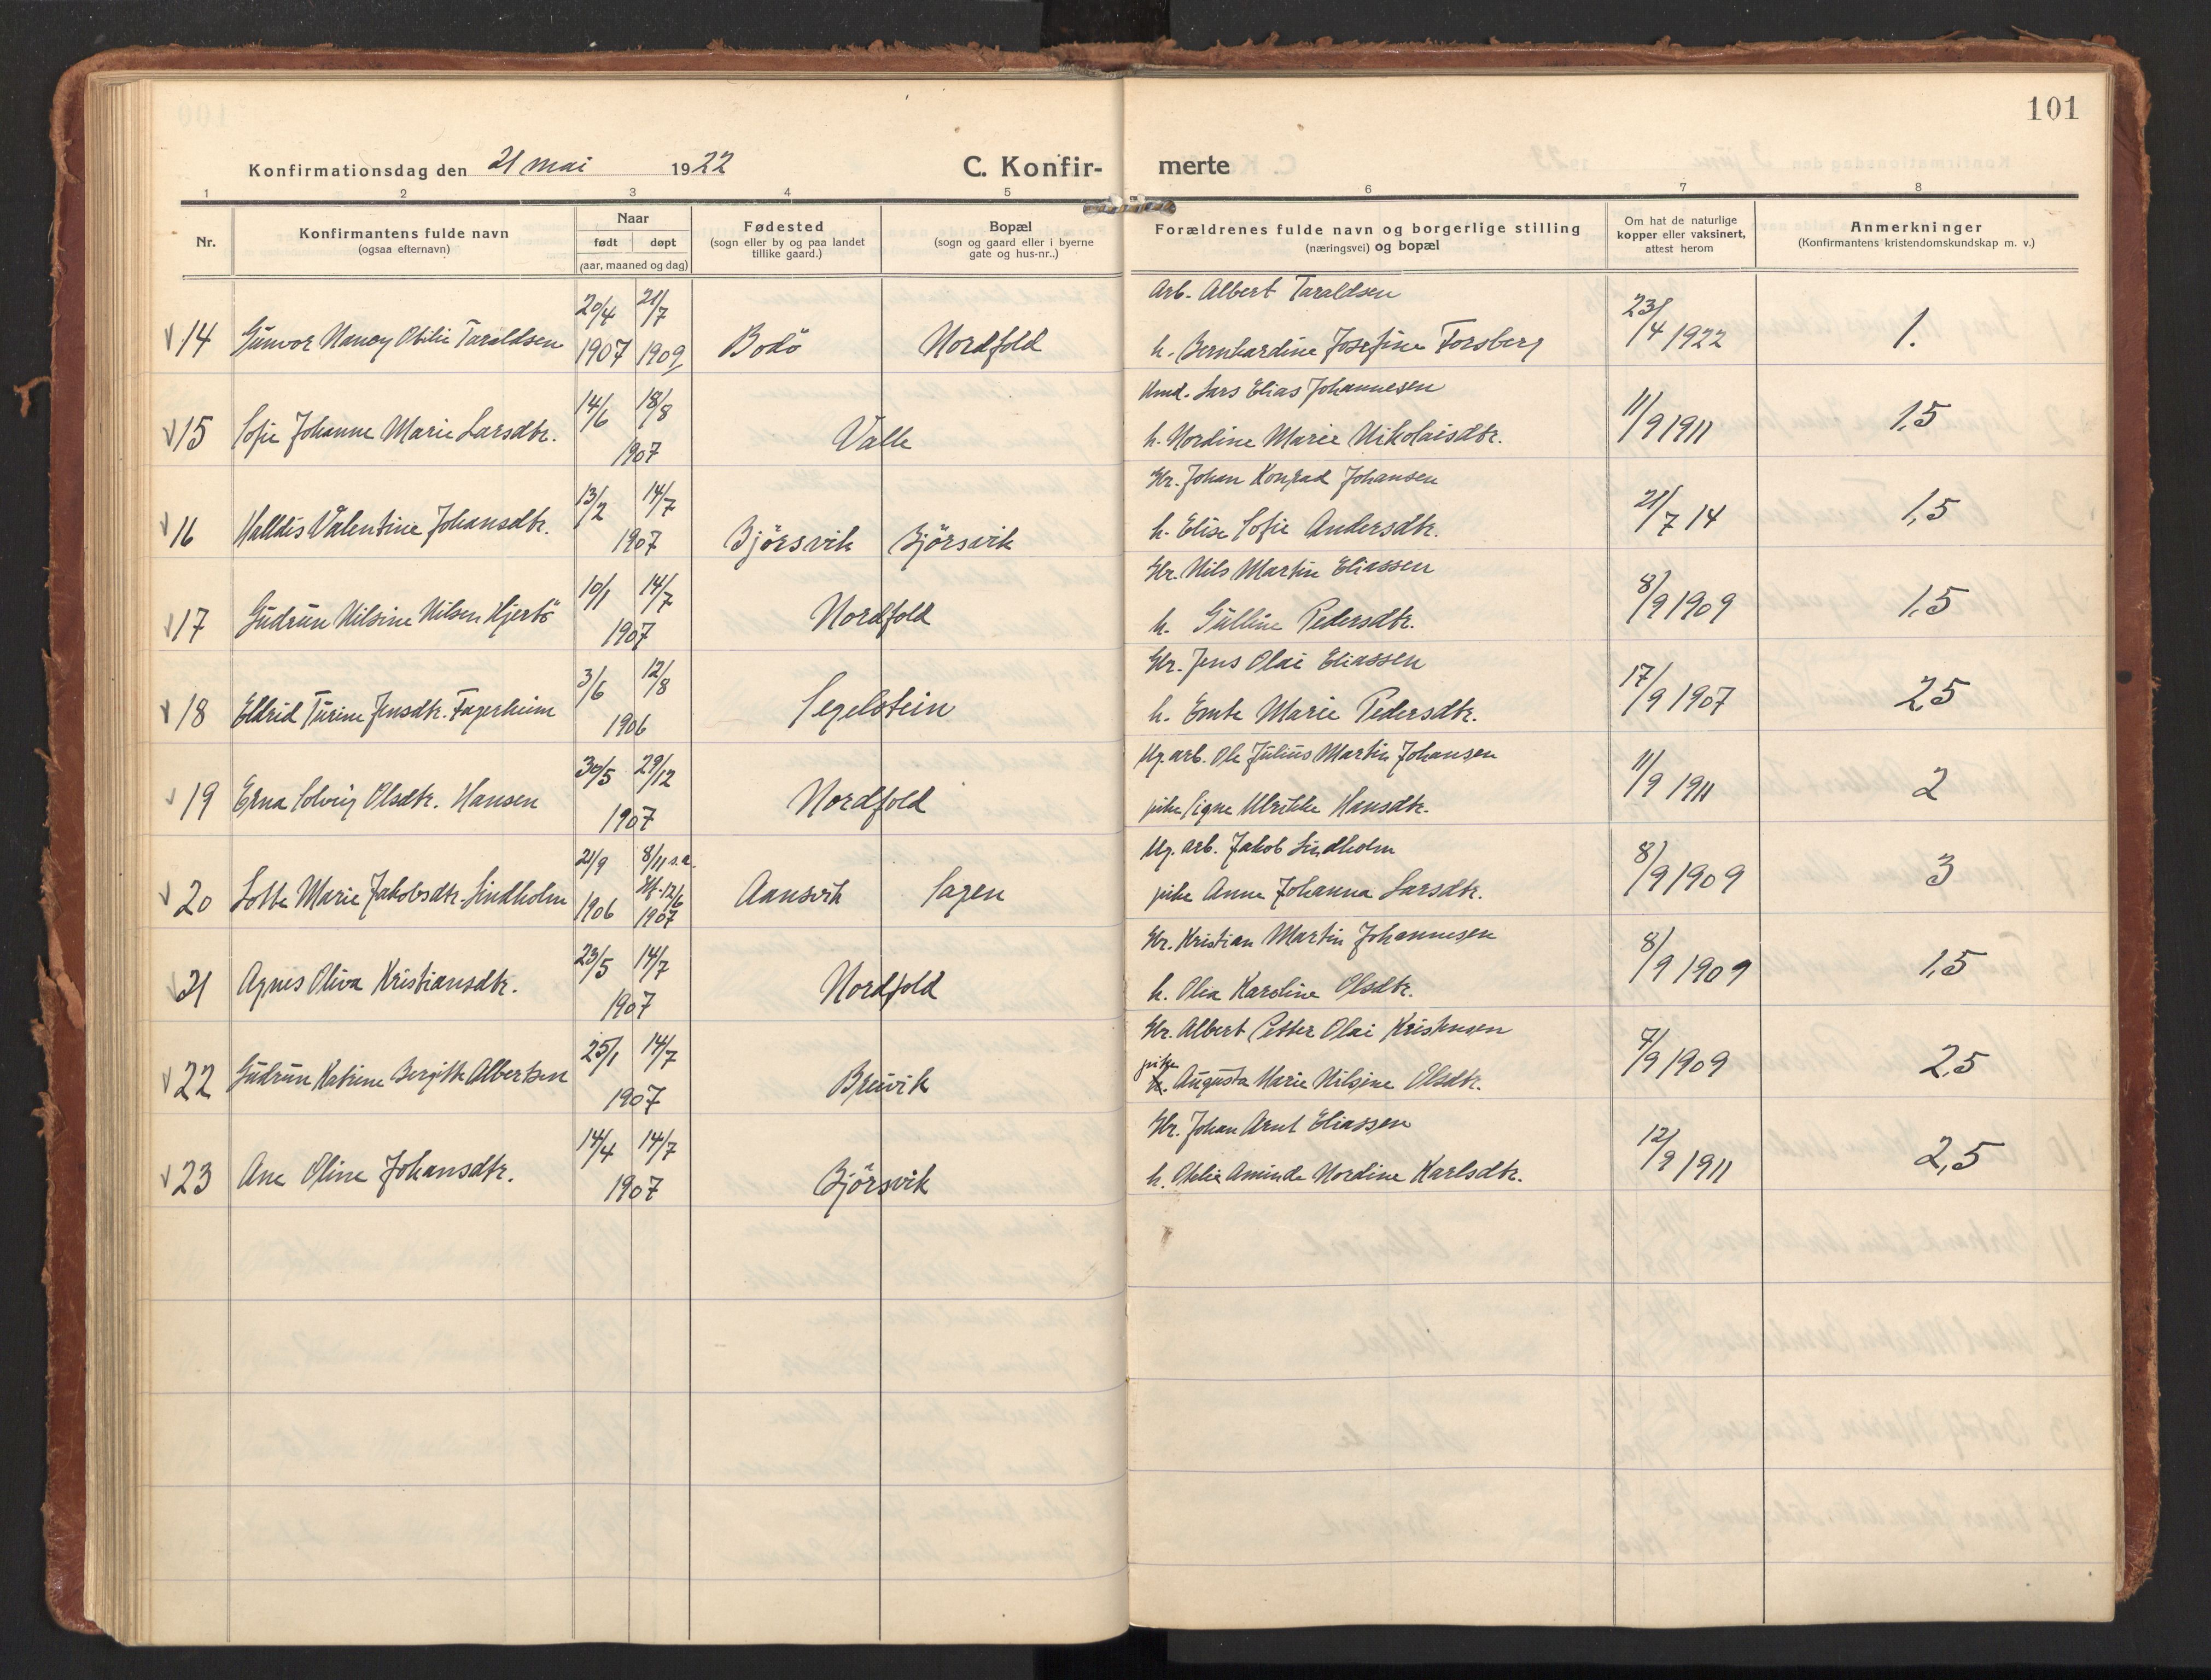 101
Konfirmationsdag den 21 mai 1922 C. Konfir- merte
1 2 3 4 5 6 7 8
Nr.
Konfirmantens fulde navn
(ogsaa efternavn)
Naar
født døpt
(aar, maaned og dag)
Fødested
(sogn eller by og paa landet
tillike gaard.)
Bopæl
(sogn og gaard eller i byerne
gate og hus-nr..)
Forældrenes fulde navn og borgerlige stilling
(næringsvei) og bopæl
Om hat de naturlige
kopper eller vaksinert,
attest herom
Anmerkninger
(Konfirmantens kristendomskundskap m. v.)
20/4 21/7 Arb. Albert Taraldsen 23/4 1922
14 Gunvor Nancy Otilie Taraldsen 1907 1909 Bodö Nordfold h. Bernhardine Josefine Forsberg 1.
14/6 18/8 Kmd. Lars Elias Johannesen 11/9 1911
15 Sofie Johanne Marie Larsdtr. 1907 Valle h. Nordine Marie Nikolaisdtr. 1,5
13/2 14/7 Gbr. Johan Konrad Johansen 21/7 14
16 Halldis Valentine Johansdtr. 1907 Björsvik Björsvik h. Elise Sofie Andersdtr. 1,5
10/1 14/7 Gbr. Nils Martin Eliassen 8/9 1909
17 Gudrun Nilsine Nilsen Hjertö 1907 Nordfold h. Gulline Pedersdtr. 1,5
3/6 12/8 Gbr. Jens Olai Eliassen 17/9 1907
18 Eldrid Turine Jensdtr. Fagerheim 1906 Segelstein h. Emte Marie Pedersdtr. 2,5
30/5 29/12 Ug. arb. Ole Julius Martin Johansen 11/9 1911
19 Erna Solveig Olsdtr. Hansen 1907 Nordfold pike Signe Ulrikke Hansdtr. 2
21/9 8/11 s.a. Ug. arb. Jakob Lindholm 8/9 1909
20 Lotte Marie Jakobsdtr. Lindholm 1906 12/6 1907 Aansvik Sagen pike Anne Johanna Larsdtr. 3
23/5 14/7 Gbr. Kristian Martin Johannesen 8/9 1909
21 Agnes Oliva Kristiansdtr. 1907 Nordfold h. Olea Karoline Olsdtr. 1,5
25/1 14/7 Gbr. Albert Petter Olai Kristensen 7/9 1909
22 Gudrun Katrine Bergitte Albertsen 1907 Breivik pike h. Augusta Marie Nilsine Olsdtr. 2,5
14/4 14/7 Gbr. Johan Arnt Eliassen 12/9 1911
23 Ane Oline Johansdtr. 1907 Björsvik h. Otelie Aminda Nordine Karlsdtr. 2,5